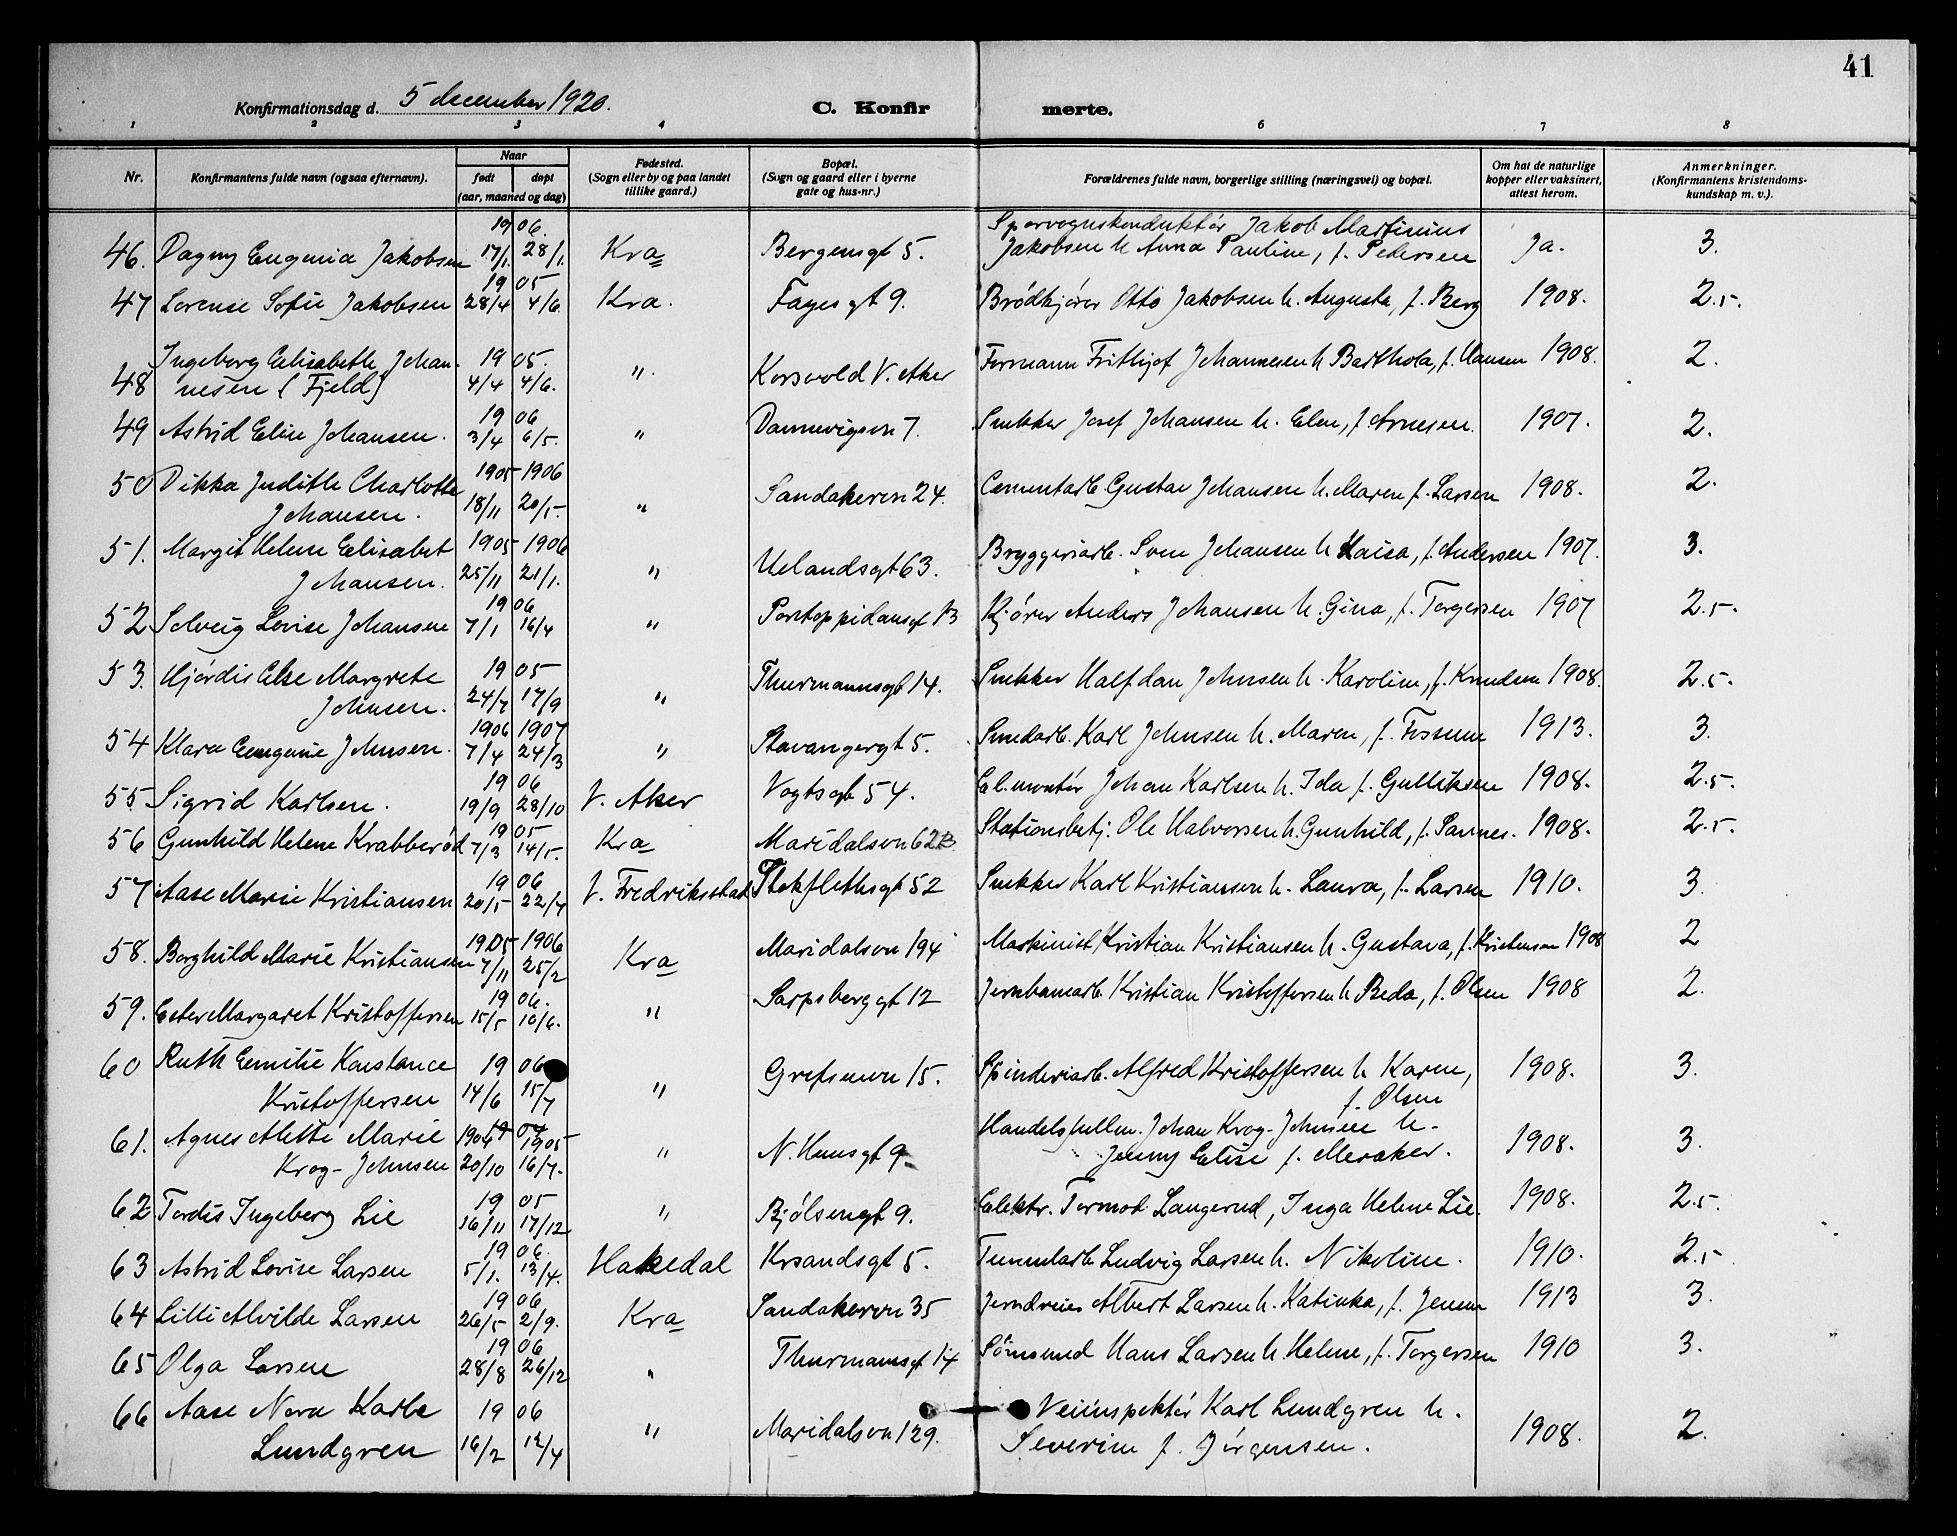 41
Konfirmationsdag d. 5 december 1920. C. Konfir merte.
1 2 3 4 6 7 8
Nr. Konfirmantens fulde navn (ogsaa efternavn). Naar født døpt (aar, maaned og dag) Fødested. (Sogn eller by og paa landet tillike gaard.) Bopæl. (Sogn og gaard eller i byerne gate og hus-nr.) Forældrenes fulde navn, borgerlige stilling (næringsvei) og bopæl. Om hat de naturlige kopper eller vaksinert, attest herom. Anmerkninger. (Konfirmantens kristendoms- kundskap m. v.).
19 06. Sporvognskonduktør Jakob Martinius
46. Dagny Eugenia Jakobsen 17/1. 28/1. Kra Bergensgt 5. Jakobsen h Anna Pauline, f. Pedersen Ja. 3.
19 05
47 Lorense Sofie Jakobsen 28/4 4/6. Kra. Fayesgt 9. Brødkjører Otto Jakobsen h. Augusta, f. Berg 1908. 2.5.
Ingeborg Elisabeth Johan- 19 05. Formann Frithjof Johannesen h Barthola, f. Hansen 1908. 2.
48 nesen (Fjeld) 4/4 4/6. ". Korsvold V. Aker
19 06
49 Astrid Elise Johansen. 3/4 6/5. " Dannevigsvn 7. Snekker Josef Johansen h. Elen, f. Arnesen. 1907. 2.
1905 1906
50 Dikka Judithe Charlotte Sandakervn 24. Cementarb. Gustav Johansen h. Maren f. Larsen 1908. 2.
Johansen. 18/11 20/5. "
51. Margit Helene Elisabet 1905 1906 Bryggeriarb. Sven Johansen h Kaisa, f. Andersen 1907. 3.
Johansen. 25/11 21/1. " Uelandsgt 63.
19 06
52 Solveig Lovise Johansen 7/1 16/4 " Pontoppidansgt 13 Kjører Anders Johansen h. Gina, f. Torgersen 1907 2.5.
53. Hjørdis Else Margrete 19 05 Thurmannsgt 14. Snekker Halfdan Johnsen h. Karoline, f. Knudsen 1908. 2.5.
Johnsen. 24/7 17/9 "
1906 1907
54 Klara Eugenie Johnsen. 7/4 24/3 " Stavangergt 5. Smedarb. Karl Johnsen h. Maren, f. Fossum 1913. 3.
19 06
55 Sigrid Karlsen. 19/9 28/10 V. Aker Vogtsgt 54. El.montør Johan Karlsen h. Ida f. Gulliksen 1908. 2.5.
19 05
56 Gunhild Helene Krabberød 7/3 14/5. Kra Maridalsvn 62B. Stationsbetj. Ole Halvorsen h. Gunhild, f. Sannes. 1908. 2.5.
19 06
57 Aase Marie Kristiansen 20/5 22/7 V. Fredriksstad Stokflethsgt 52 Snekker Karl Kristiansen h. Laura, f. Larsen 1910. 3.
1905 1906
58. Borghild Marie Kristiansen 7/11 25/2 Kra Maridalsvn 194 Maskinist Kristian Kristiansen h. Gustava, f. Kristensen 1908 2
19 06.
59. Ester Margaret Kristoffersen 15/5 10/6. " Sarpsborggt 12 Jernbanearb. Kristian Kristoffersen h Beda, f. Olsen 1908 2.
60 Ruth Emilie Konstance 19 06 Grefsenvn 15. Spinderiarb. Alfred Kristoffersen h Karen, 1908. 3.
Kristoffersen 14/6 15/7 " f. Olsen
61. Agnes Alette Marie 1904 1905 Handelsfullm. Johan Krog-Johnsen h. 1908. 3.
Krog-Johnsen 20/10 16/7. " N. Hansgt 9. Jenny Elise f. Meraker.
19 05
62 Tordis Ingeborg Lie 16/11 17/12 " Bjølsengt 9. Elektr. Tormod Langerud, Inga Helene Lie. 1908. 2.5.
19 06.
63 Astrid Lovise Larsen 5/1. 13/4. Hakedal Krsandsgt 5. Tunnelarb Ludvig Larsen h. Nikoline. 1910. 2.5
19 06
64 Lilli Alvilde Larsen 26/5 2/9. Kra Sandakervn 35 Jerndreier Albert Larsen h. Katinka, f. Jensen 1913 3.
19 06
65 Olga Larsen 28/8 26/12 " Thurmannsgt 14 Sømsmed Hans Larsen h. Helene, f. Torgersen 1910 3.
66 Aase Nora Karla 19 06 Veiinspektør Karl Lundgren h.
Lundgren 16/2 12/4 " Maridalsvn 129. Severine f. Jørgensen. 1908. 2.